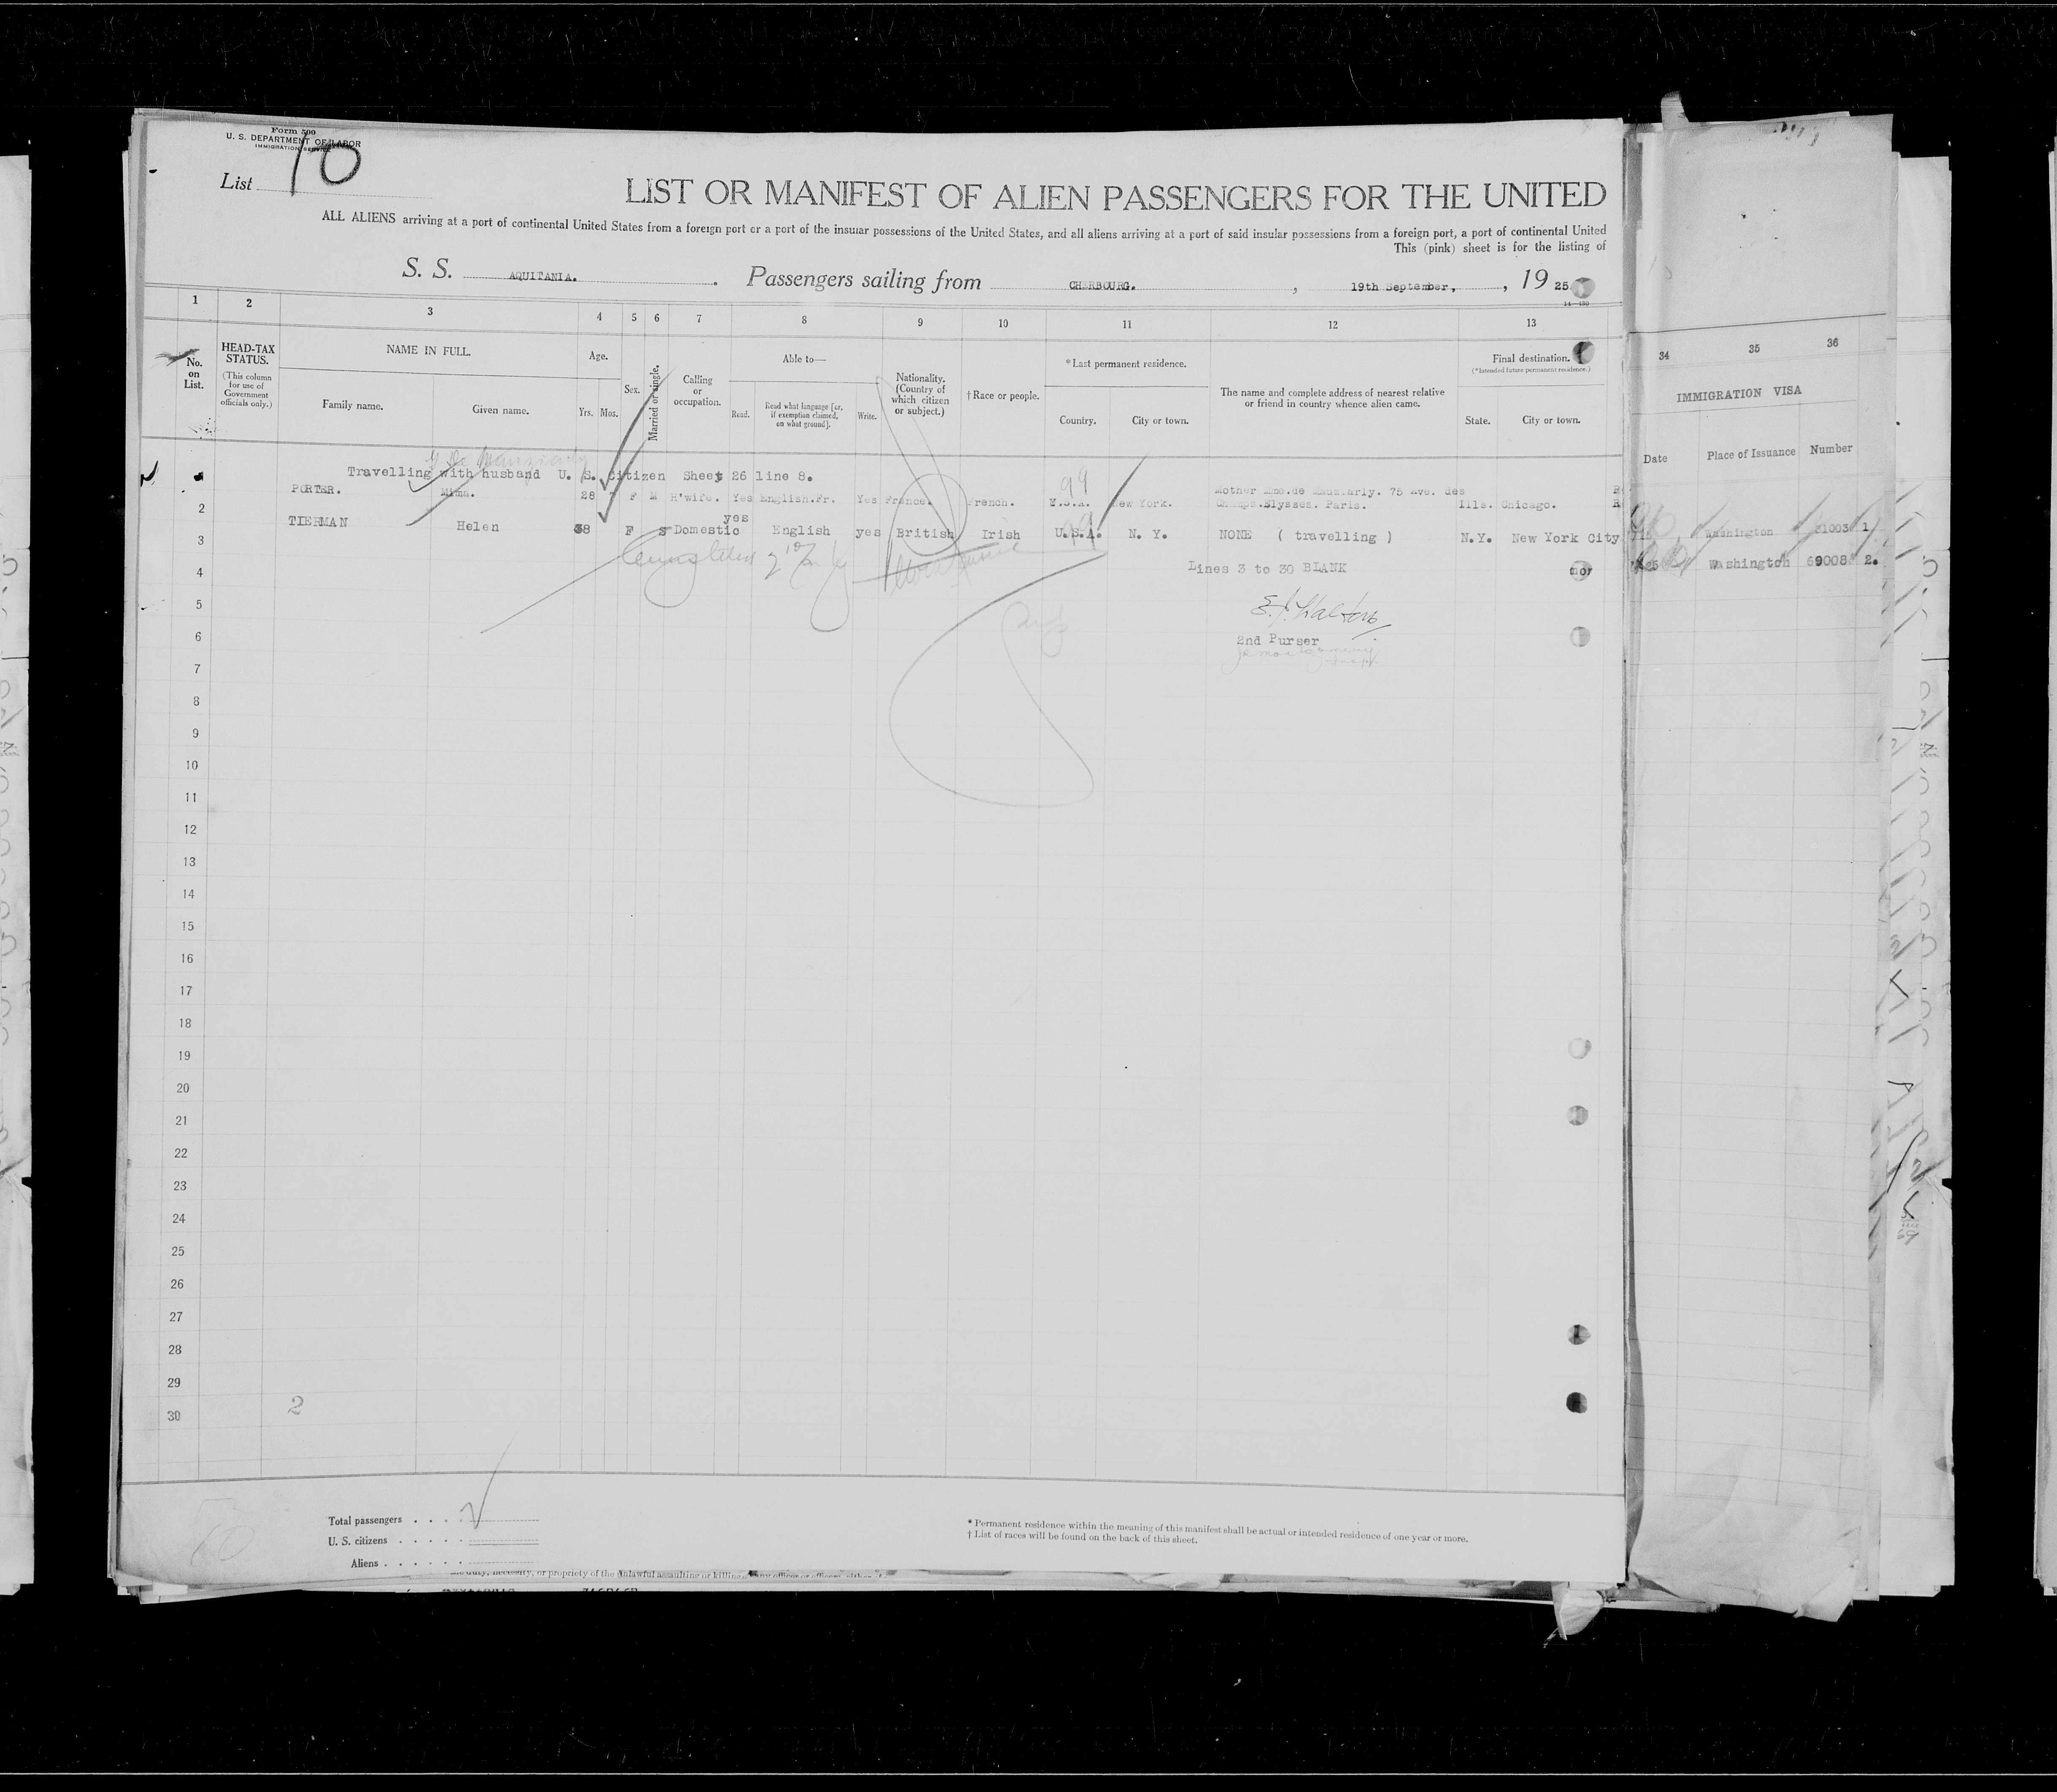 Form 500
U. S. DEPARTMENT OF LABOR
IMMIGRATION SERVICE
List 10
LIST OR MANIFEST OF ALIEN PASSENGERS FOR THE UNITED
ALL ALIENS arriving at a port of continental United States from a foreign port or a port of the insular possessions of the United States, and all aliens arriving at a port of said insular possessions from a foreign port, a port of continental United
This (pink) sheet is for the listing of
S. S. AQUITANIA. Passengers sailing from CHERBOURG. , 19th September, , 19 25
1 2 3 4 5 6 7 8 9 10 11 12 13 34 35 36
No. on List.
HEAD-TAX STATUS.
(This column for use of Government officials only.)
NAME IN FULL.
Family name. Given name.
Age.
Yrs. Mos.
Sex.
Married or single.
Calling or occupation.
Able to—
Read. Read what language [or, if exemption claimed, on what ground]. Write.
Nationality. (Country of which citizen or subject.)
†Race or people.
*Last permanent residence.
Country. City or town.
The name and complete address of nearest relative or friend in country whence alien came.
Final destination.
(*Intended future permanent residence.)
State. City or town.
IMMIGRATION VISA
Date Place of Issuance Number
Travelling with husband U. S. Citizen Sheet 26 line 8.
PORTER. Mima. 28 F M H'wife. Yes English.Fr. Yes France. French. 99 U.S.A. New York. Mother Mme.de 75 Ave. des Champs.Elysses. Paris. Ills. Chicago. Washington 1
TIERMAN Helen 38 F S Domestic yes English yes British Irish U.S.A. N. Y. NONE ( travelling ) N.Y. New York City Washington 69008 2.
Lines 3 to 30 BLANK
2nd Purser
2
3
4
5
6
7
8
9
10
11
12
13
14
15
16
17
18
19
20
21
22
23
24
25
26
27
28
29
30
2
Total passengers
U. S. citizens
Aliens
* Permanent residence within the meaning of this manifest shall be actual or intended residence of one year or more.
† List of races will be found on the back of this sheet.
or propriety of the unlawful assaulting or killing